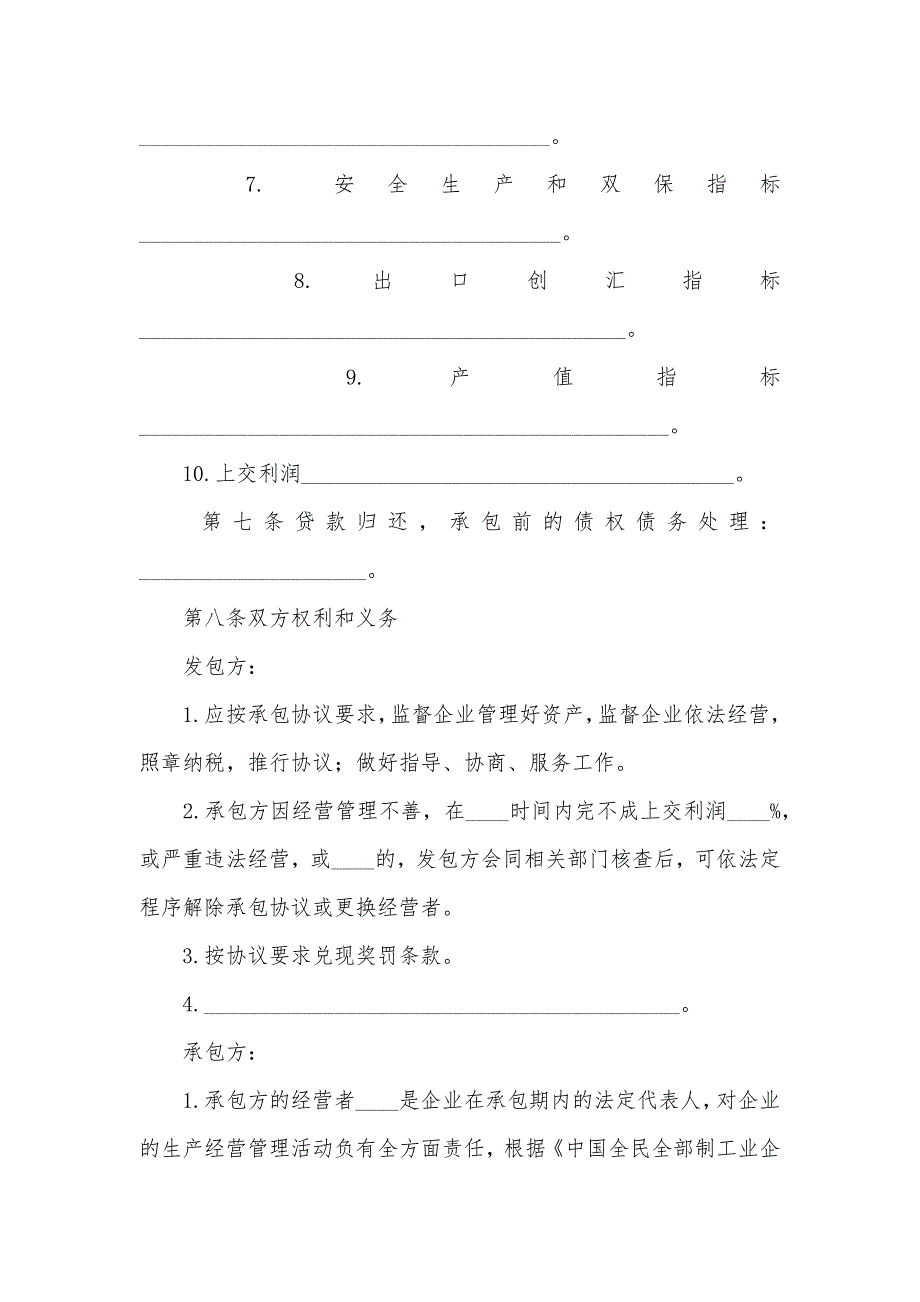 ______________________________________。
7. 安全生产和双保指标
_______________________________________。
8. 出口创汇指标
_____________________________________________。
9. 产值指标
_________________________________________________。
10.上交利润________________________________________。
第七条贷款归还，承包前的债权债务处理：
_____________________。
第八条双方权利和义务
发包方：
1.应按承包协议要求，监督企业管理好资产，监督企业依法经营，
照章纳税，推行协议；做好指导、协商、服务工作。
2.承包方因经营管理不善，在____时间内完不成上交利润____%，
或严重违法经营，或____的，发包方会同相关部门核查后，可依法定
程序解除承包协议或更换经营者。
3.按协议要求兑现奖罚条款。
4.____________________________________________。
承包方：
1.承包方的经营者____是企业在承包期内的法定代表人，对企业
的生产经营管理活动负有全方面责任，根据《中国全民全部制工业企